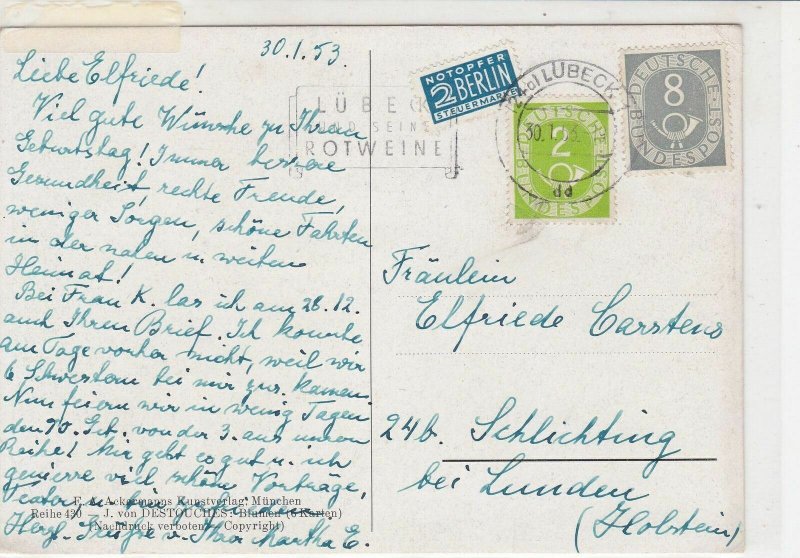 30.1.53.
Liebe Elfriede!
Viel gute Wünsche zu Ihrem
Geburtstag! Immer bessere
Gesundheit, rechte Freude,
weniger Sorgen, schöne Fahrten
in der nahen u. weiten
Heimat!
Bei Frau K. las ich am 28.12.
auch Ihren Brief. Ich konnte
am Tage vorher nicht, weil wir
6 Schwestern bei mir zus. kamen.
Nun feiern wir in wenig Tagen
den 70. Geb. von der 3. aus unserer
Reihe! Mir geht es gut u. ich
geniesse viel schöne Vorträge,
Teater,
E. A. Ackermanns Kunstverlag, München
Reihe 420 — J. von DESTOUCHES: Blumen (6 Karten)
(Nachdruck verboten — Copyright)
Herzl. Grüsse v. Ihrer Martha E.
LÜBECK
UND SEINE
ROTWEINE
NOTOPFER
2 BERLIN
STEUERMARKE
(24a) LÜBECK 1
30.1.53
dd
DEUTSCHE
2
BUNDESPOST
DEUTSCHE
8
BUNDESPOST
Fräulein
Elfriede Carstens
24b. Schlichting
bei Lunden
(Holstein)